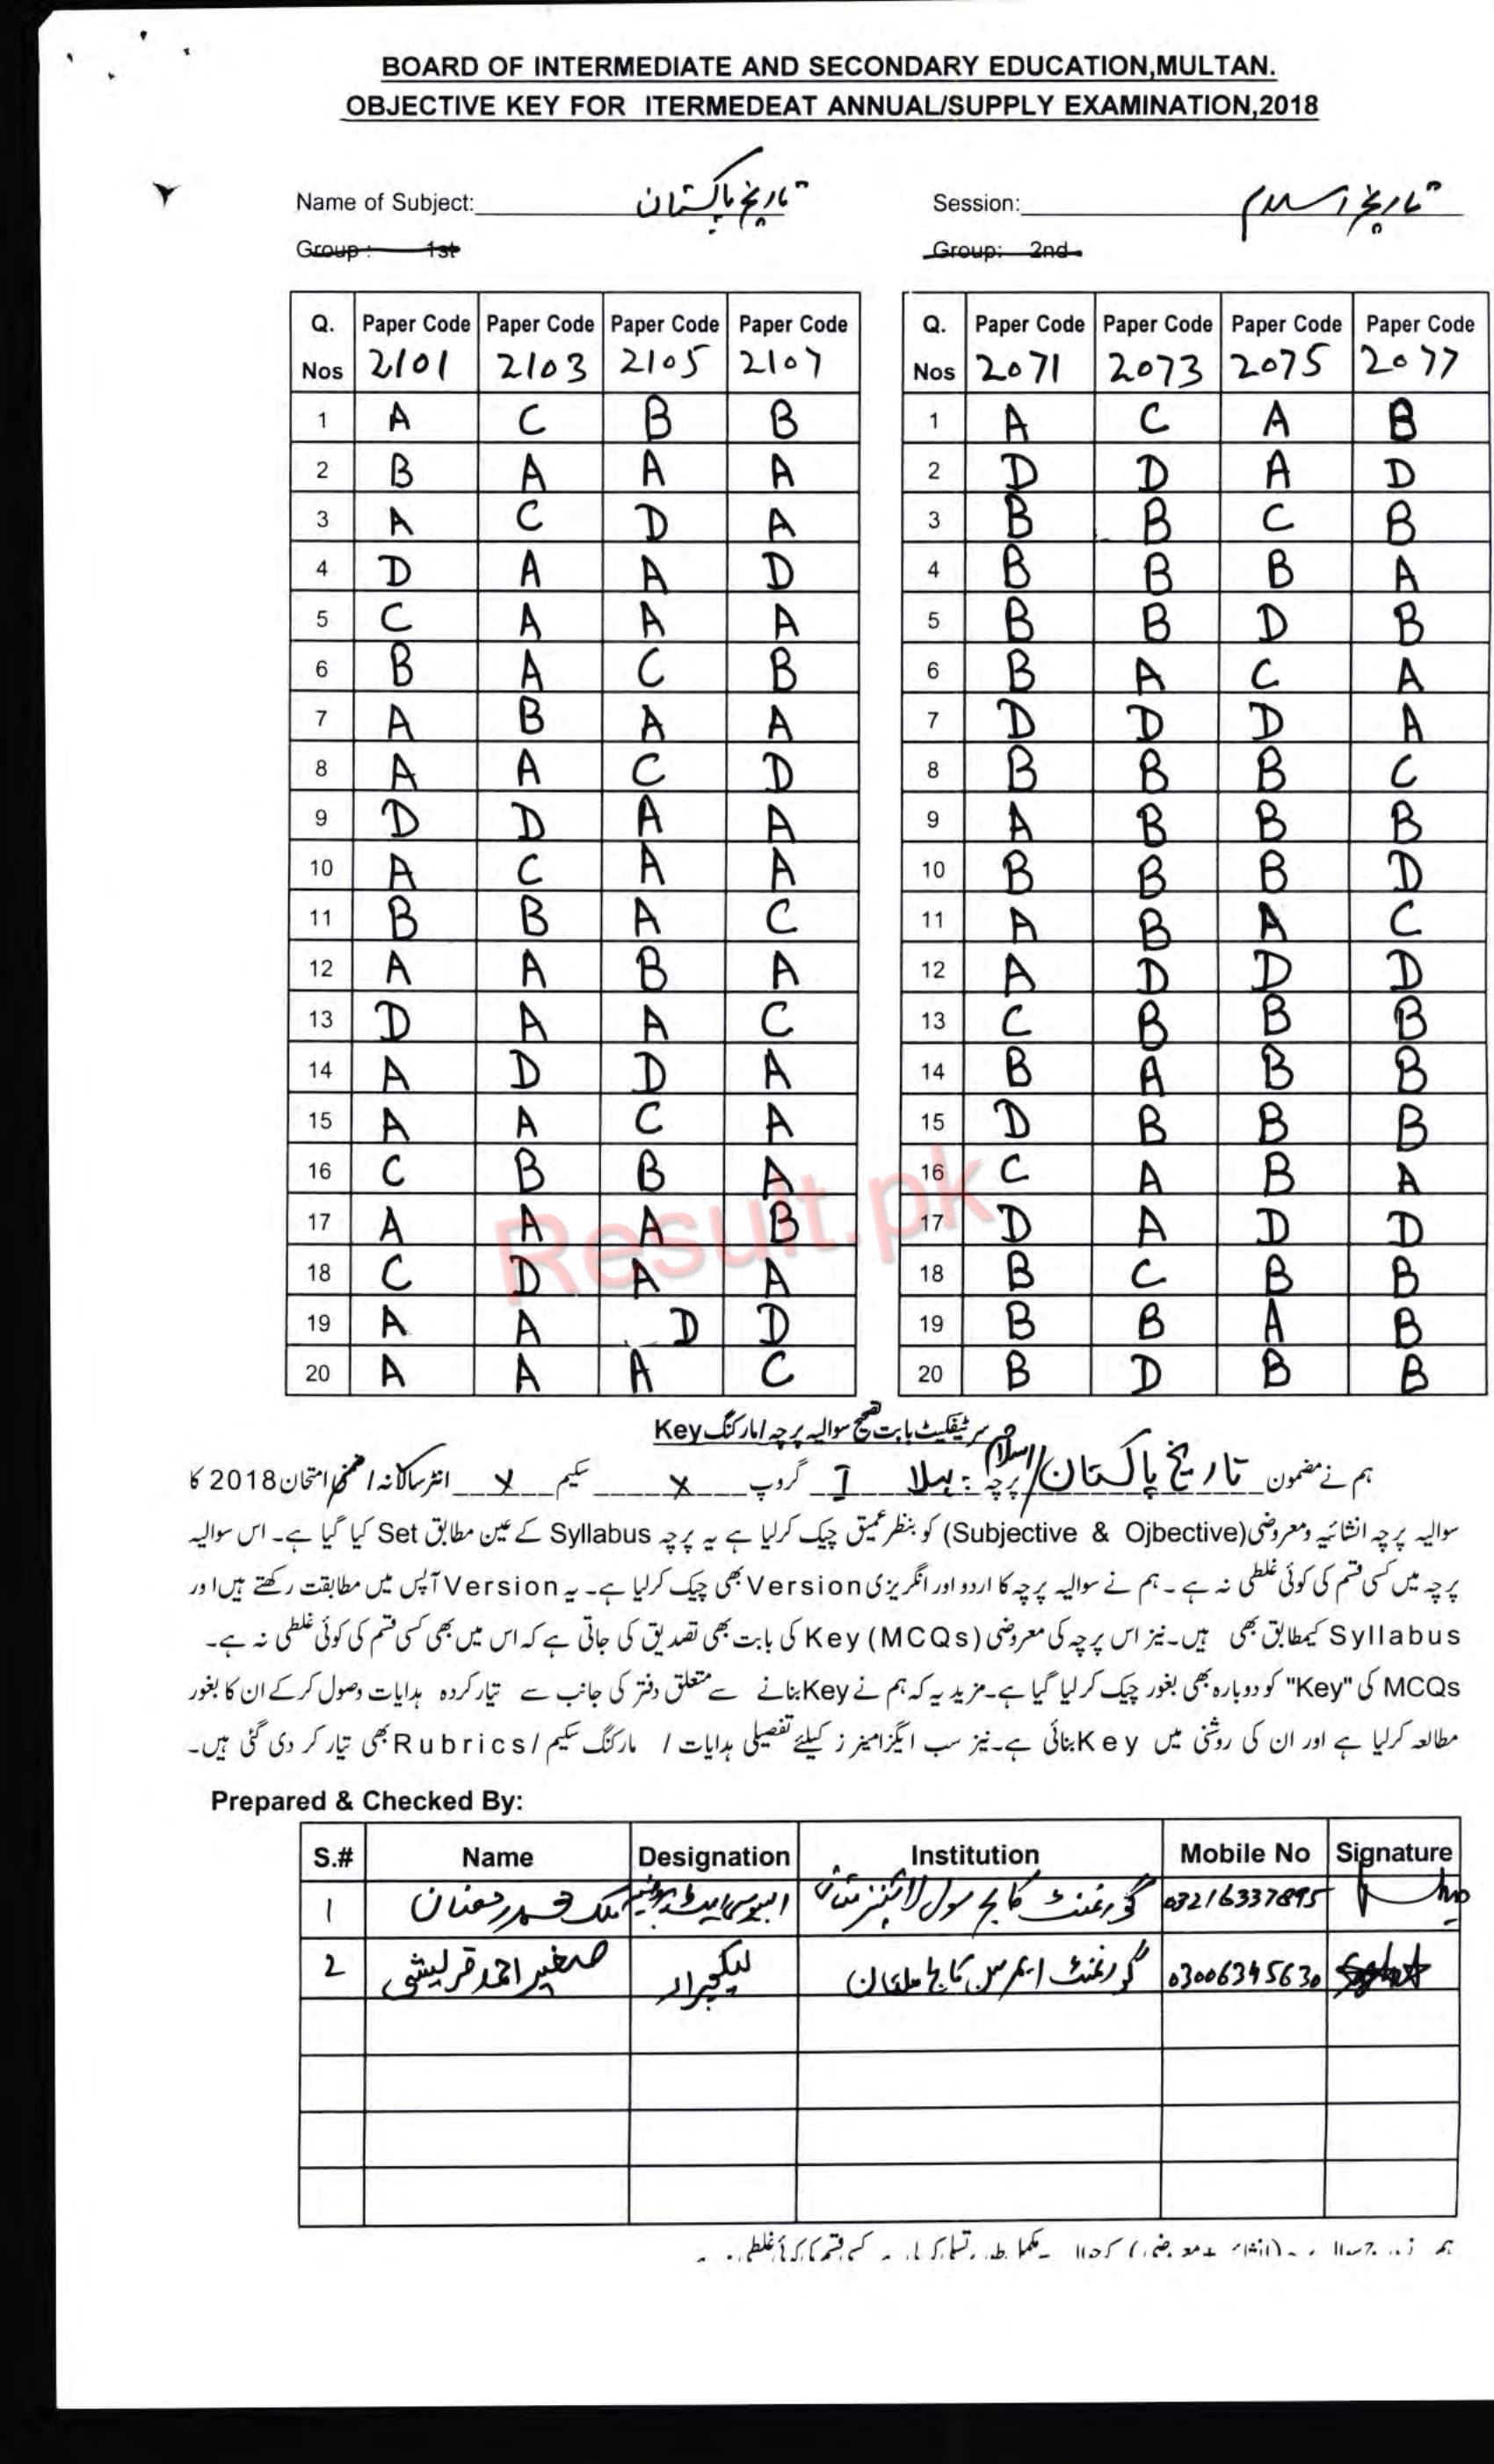 BOARD OF INTERMEDIATE AND SECONDARY EDUCATION,MULTAN.
OBJECTIVE KEY FOR ITERMEDEAT ANNUAL/SUPPLY EXAMINATION,2018
Name of Subject: تاریخ پاکستان
Session: تاریخ اسلام
Group : 1st
Group: 2nd
Q. Nos Paper Code 2101 Paper Code 2103 Paper Code 2105 Paper Code 2107
1 A C B B
2 B A A A
3 A C D A
4 D A A D
5 C A A A
6 B A C B
7 A B A A
8 A A C D
9 D D A A
10 A C A A
11 B B A C
12 A A B A
13 D A A C
14 A D D A
15 A A C A
16 C B B A
17 A A A B
18 C D A A
19 A A D D
20 A A A C
Q. Nos Paper Code 2071 Paper Code 2073 Paper Code 2075 Paper Code 2077
1 A C A B
2 D D A D
3 B B C B
4 B B B A
5 B B D B
6 B A C A
7 D D D A
8 B B B C
9 A B B B
10 B B B D
11 A B A C
12 A D D D
13 C B B B
14 B A B B
15 D B B B
16 C A B A
17 D A D D
18 B C B B
19 B B A B
20 B D B B
Result.pk
سرٹیفکیٹ بابت تصحیح سوالیہ پرچہ/مارکنگ Key
ہم نے مضمون تاریخ پاکستان/اسلام پرچہ: پہلا I گروپ x سکیم x انٹر سالانہ/ضمنی امتحان 2018 کا
سوالیہ پرچہ انشائیہ ومعروضی(Subjective & Ojbective) کو بنظر عمیق چیک کرلیا ہے یہ پرچہ Syllabus کے عین مطابق Set کیا گیا ہے۔ اس سوالیہ
پرچہ میں کسی قسم کی کوئی غلطی نہ ہے ۔ ہم نے سوالیہ پرچہ کا اردو اور انگریزی Version بھی چیک کرلیا ہے۔ یہ Version آپس میں مطابقت رکھتے ہیں اور
Syllabus کیمطابق بھی ہیں۔نیز اس پرچہ کی معروضی (MCQs) Key کی بابت بھی تصدیق کی جاتی ہے کہ اس میں بھی کسی قسم کی کوئی غلطی نہ ہے۔
MCQs کی "Key" کو دوبارہ بھی بغور چیک کرلیا گیا ہے۔مزید یہ کہ ہم نے Key بنانے سے متعلق دفتر کی جانب سے تیار کردہ ہدایات وصول کرکے ان کا بغور
مطالعہ کرلیا ہے اور ان کی روشنی میں Key بنائی ہے۔نیز سب ایگزامینرز کیلئے تفصیلی ہدایات / مارکنگ سکیم /Rubrics بھی تیار کر دی گئی ہیں۔
Prepared & Checked By:
S.# Name Designation Institution Mobile No Signature
1 ملک محمد رمضان ایسوسی ایٹ پروفیسر گورنمنٹ کالج سول لائینز ملتان 03216337895
2 صغیر احمد قریشی لیکچرار گورنمنٹ ایمرسن کالج ملتان 03006345630